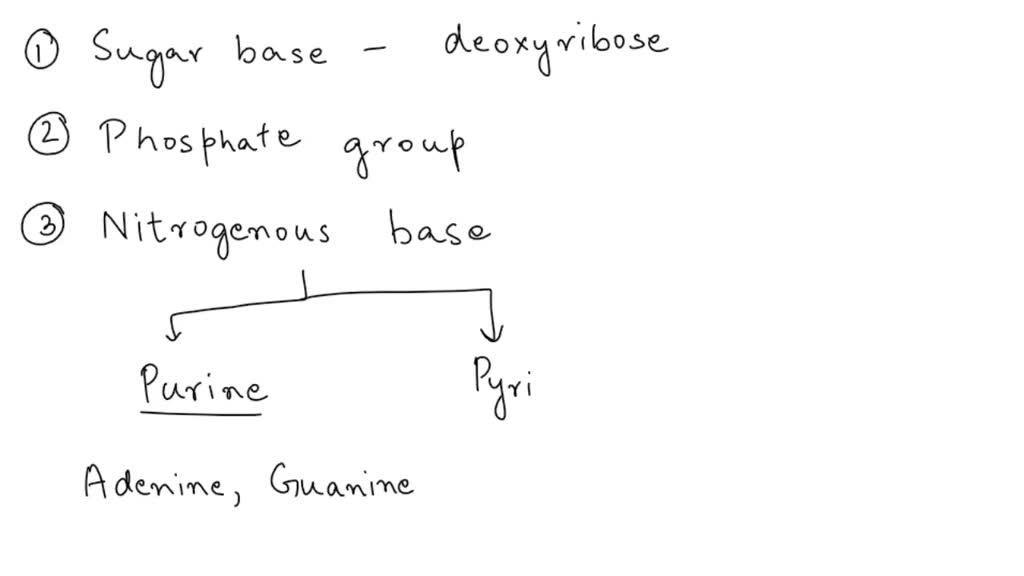 ① Sugar base - deoxyribose
② Phosphate group
③ Nitrogenous base
Purine Pyri
Adenine, Guanine